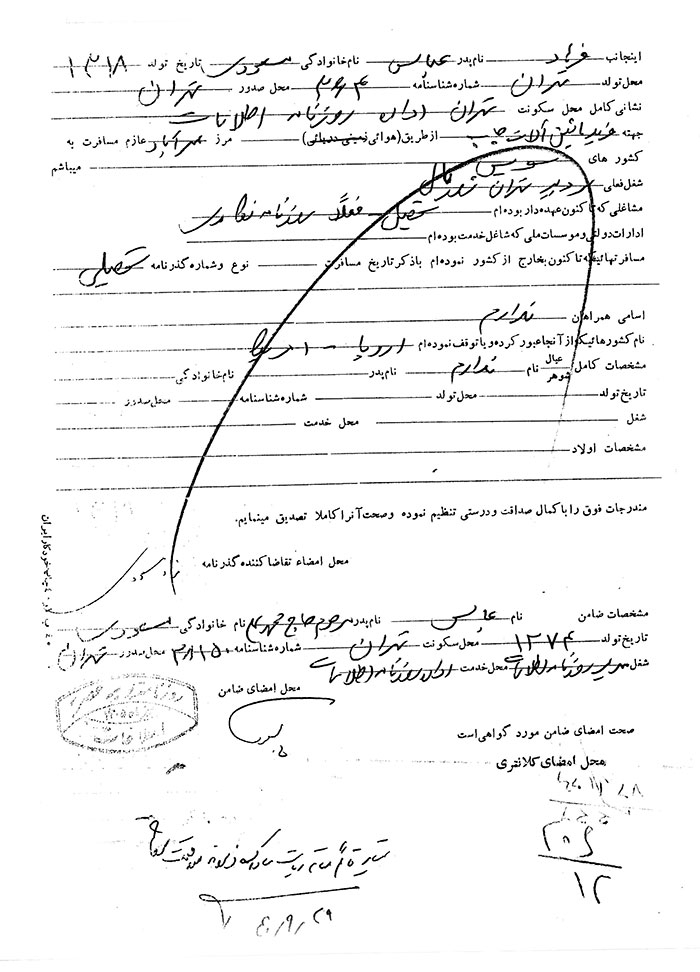 اینجانب فرهاد نام پدر عباس نام خانوادگی مسعودی تاریخ تولد ۱۳۱۸
محل تولد تهران شماره شناسنامه ۳۶۴ محل صدور تهران
نشانی کامل محل سکونت تهران اداره روزنامه اطلاعات
جهته خرید ماشین آلات چاپ از طریق (هوائی زمینی دریائی) مرز مهرآباد عازم مسافرت به
کشور های سویس میباشم
شغل فعلی سردبیر تهران ژورنال
مشاغلی که تا کنون عهده دار بوده ام تحصیل فعلاً روزنامه نگاری
ادارات دولتی و موسسات ملی که شاغل خدمت بوده ام
مسافرتهائیکه تا کنون بخارج از کشور نموده ام با ذکر تاریخ مسافرت نوع و شماره گذرنامه تحصیلی
اسامی همراهان ندارم
نام کشورهائیکه از آنجا عبور کرده و یا توقف نموده ام اروپا - امریکا
مشخصات کامل عیال شوهر نام ندارم نام پدر نام خانوادگی
تاریخ تولد محل تولد شماره شناسنامه محل صدور
شغل محل خدمت
مشخصات اولاد
مندرجات فوق را با کمال صداقت و درستی تنظیم نموده و صحت آنرا کاملا تصدیق مینمایم.
محل امضاء تقاضا کننده گذرنامه
مشخصات ضامن نام عباس نام پدر مرحوم حاج محمدعلی نام خانوادگی مسعودی
تاریخ تولد ۱۲۷۴ محل سکونت تهران شماره شناسنامه محل صدور تهران
شغل مدیر روزنامه اطلاعات محل خدمت اداره روزنامه اطلاعات
محل امضای ضامن
صحت امضای ضامن مورد گواهی است
محل امضای کلانتری
۱۲